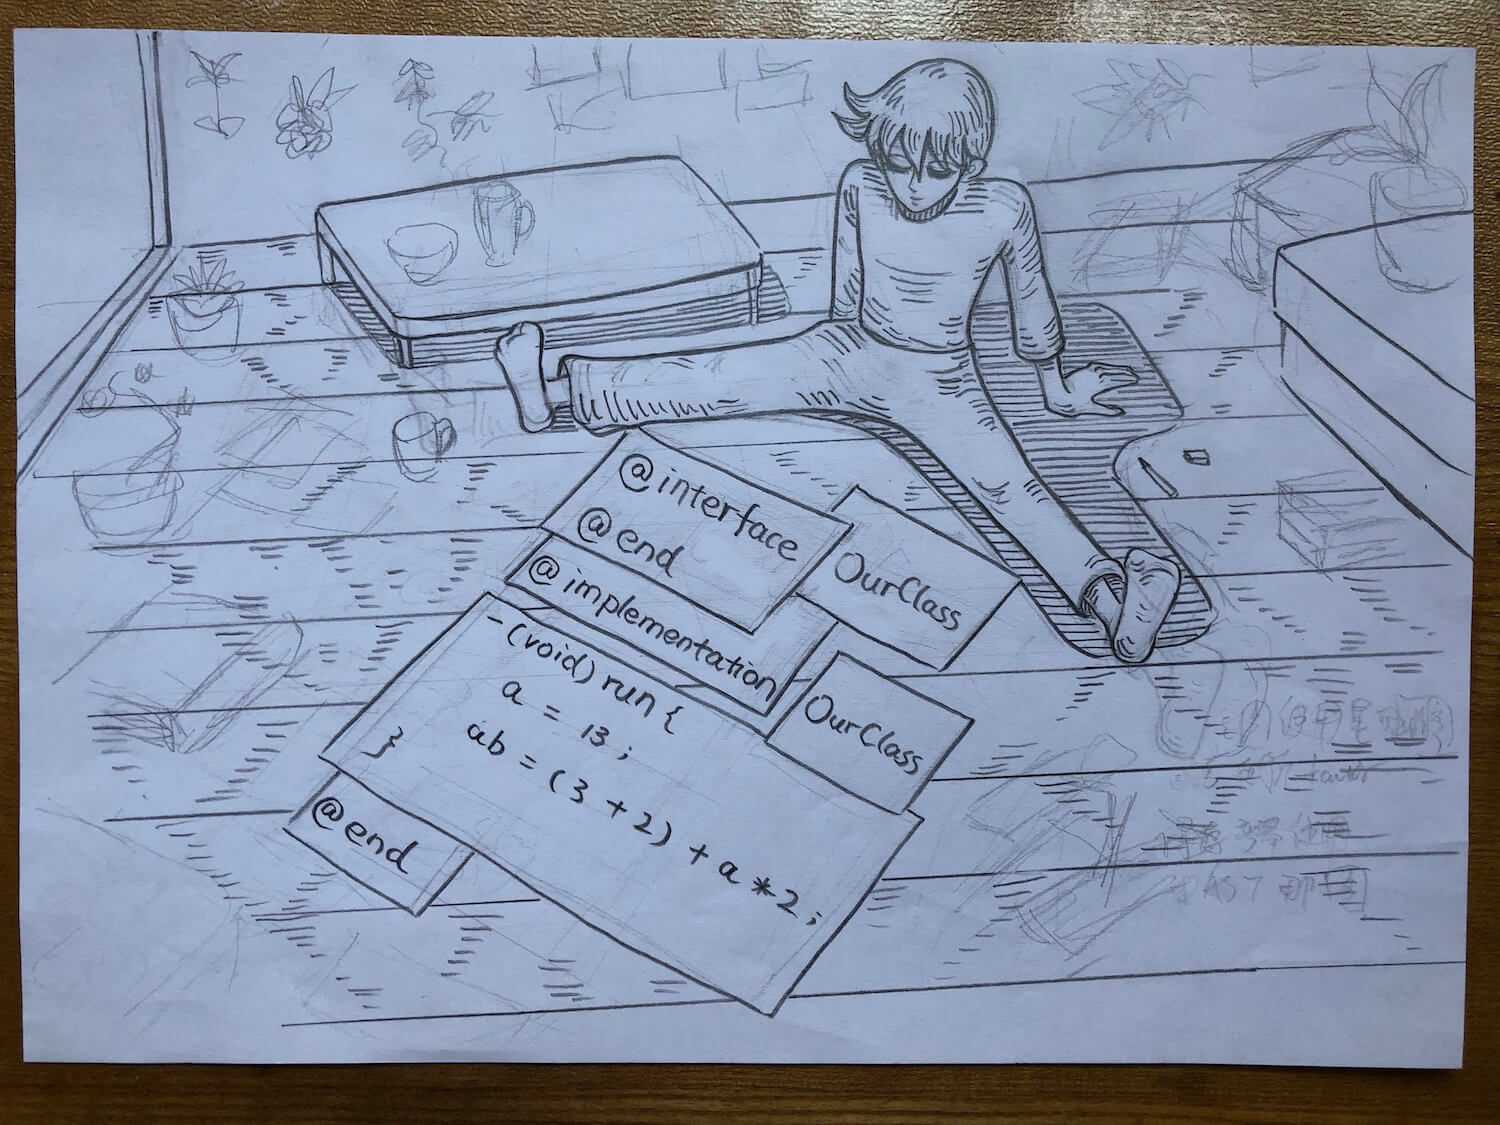 @interface
OurClass
@end
@implementation
OurClass
-(void) run {
a = 13;
ab = (3 + 2) + a * 2;
}
@end